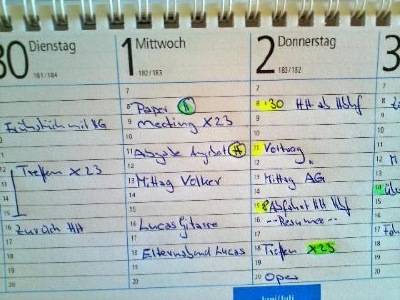 30 Dienstag
181/184
Frühstück mit AG
Treffen X23
zurück HH
1 Mittwoch
182/183
7
8 Paper
9 Meeting X23
11 Abgabe Angebot
13 Mittag Volker
16 Lucas Gitarre
18 Elternabend Lucas
20
2 Donnerstag
183/182
7
8 30 HH ab Hbf
9
10
11 Vortrag
12
13 Mittag AG
14
15 Abfahrt HH Hbf
16 --Resumee--
17
18 Treffen X23
19
20 Oper
3
Juni/Juli